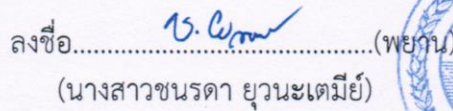 ลงชื่อ......................................(พยาน)
(นางสาวชนรดา ยุวนะเตมีย์)